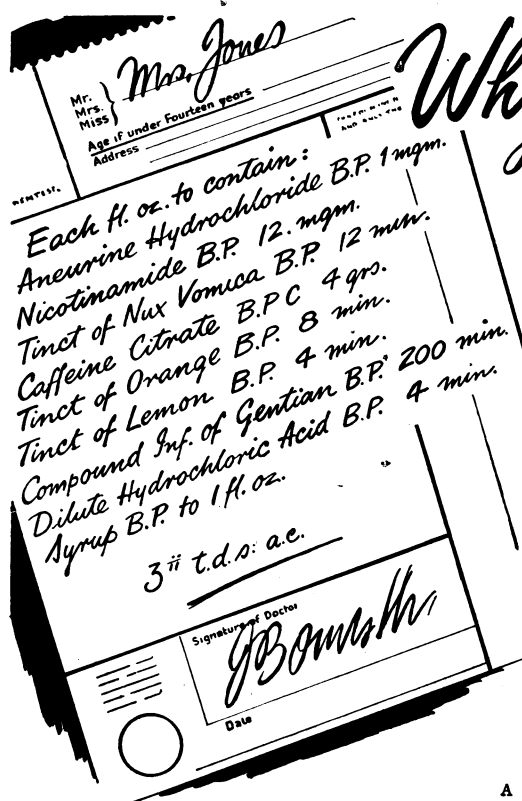 Mrs. Jones
Mr.
Mrs.
Miss
Age if under Fourteen years
Address
Wh
Each fl. oz. to contain:
Aneurine Hydrochloride B.P. 1 mgm.
Nicotinamide B.P. 12. mgm.
Tinct of Nux Vomica B.P. 12 min.
Caffeine Citrate B.P C 4 grs.
Tinct of Orange B.P. 8 min.
Tinct of Lemon B.P. 4 min.
Compound Inf. of Gentian B.P. 200 min.
Dilute Hydrochloric Acid B.P. 4 min.
Syrup B.P. to 1 fl. oz.
ʒii t.d.s: a.c.
Signature of Doctor
Date
A